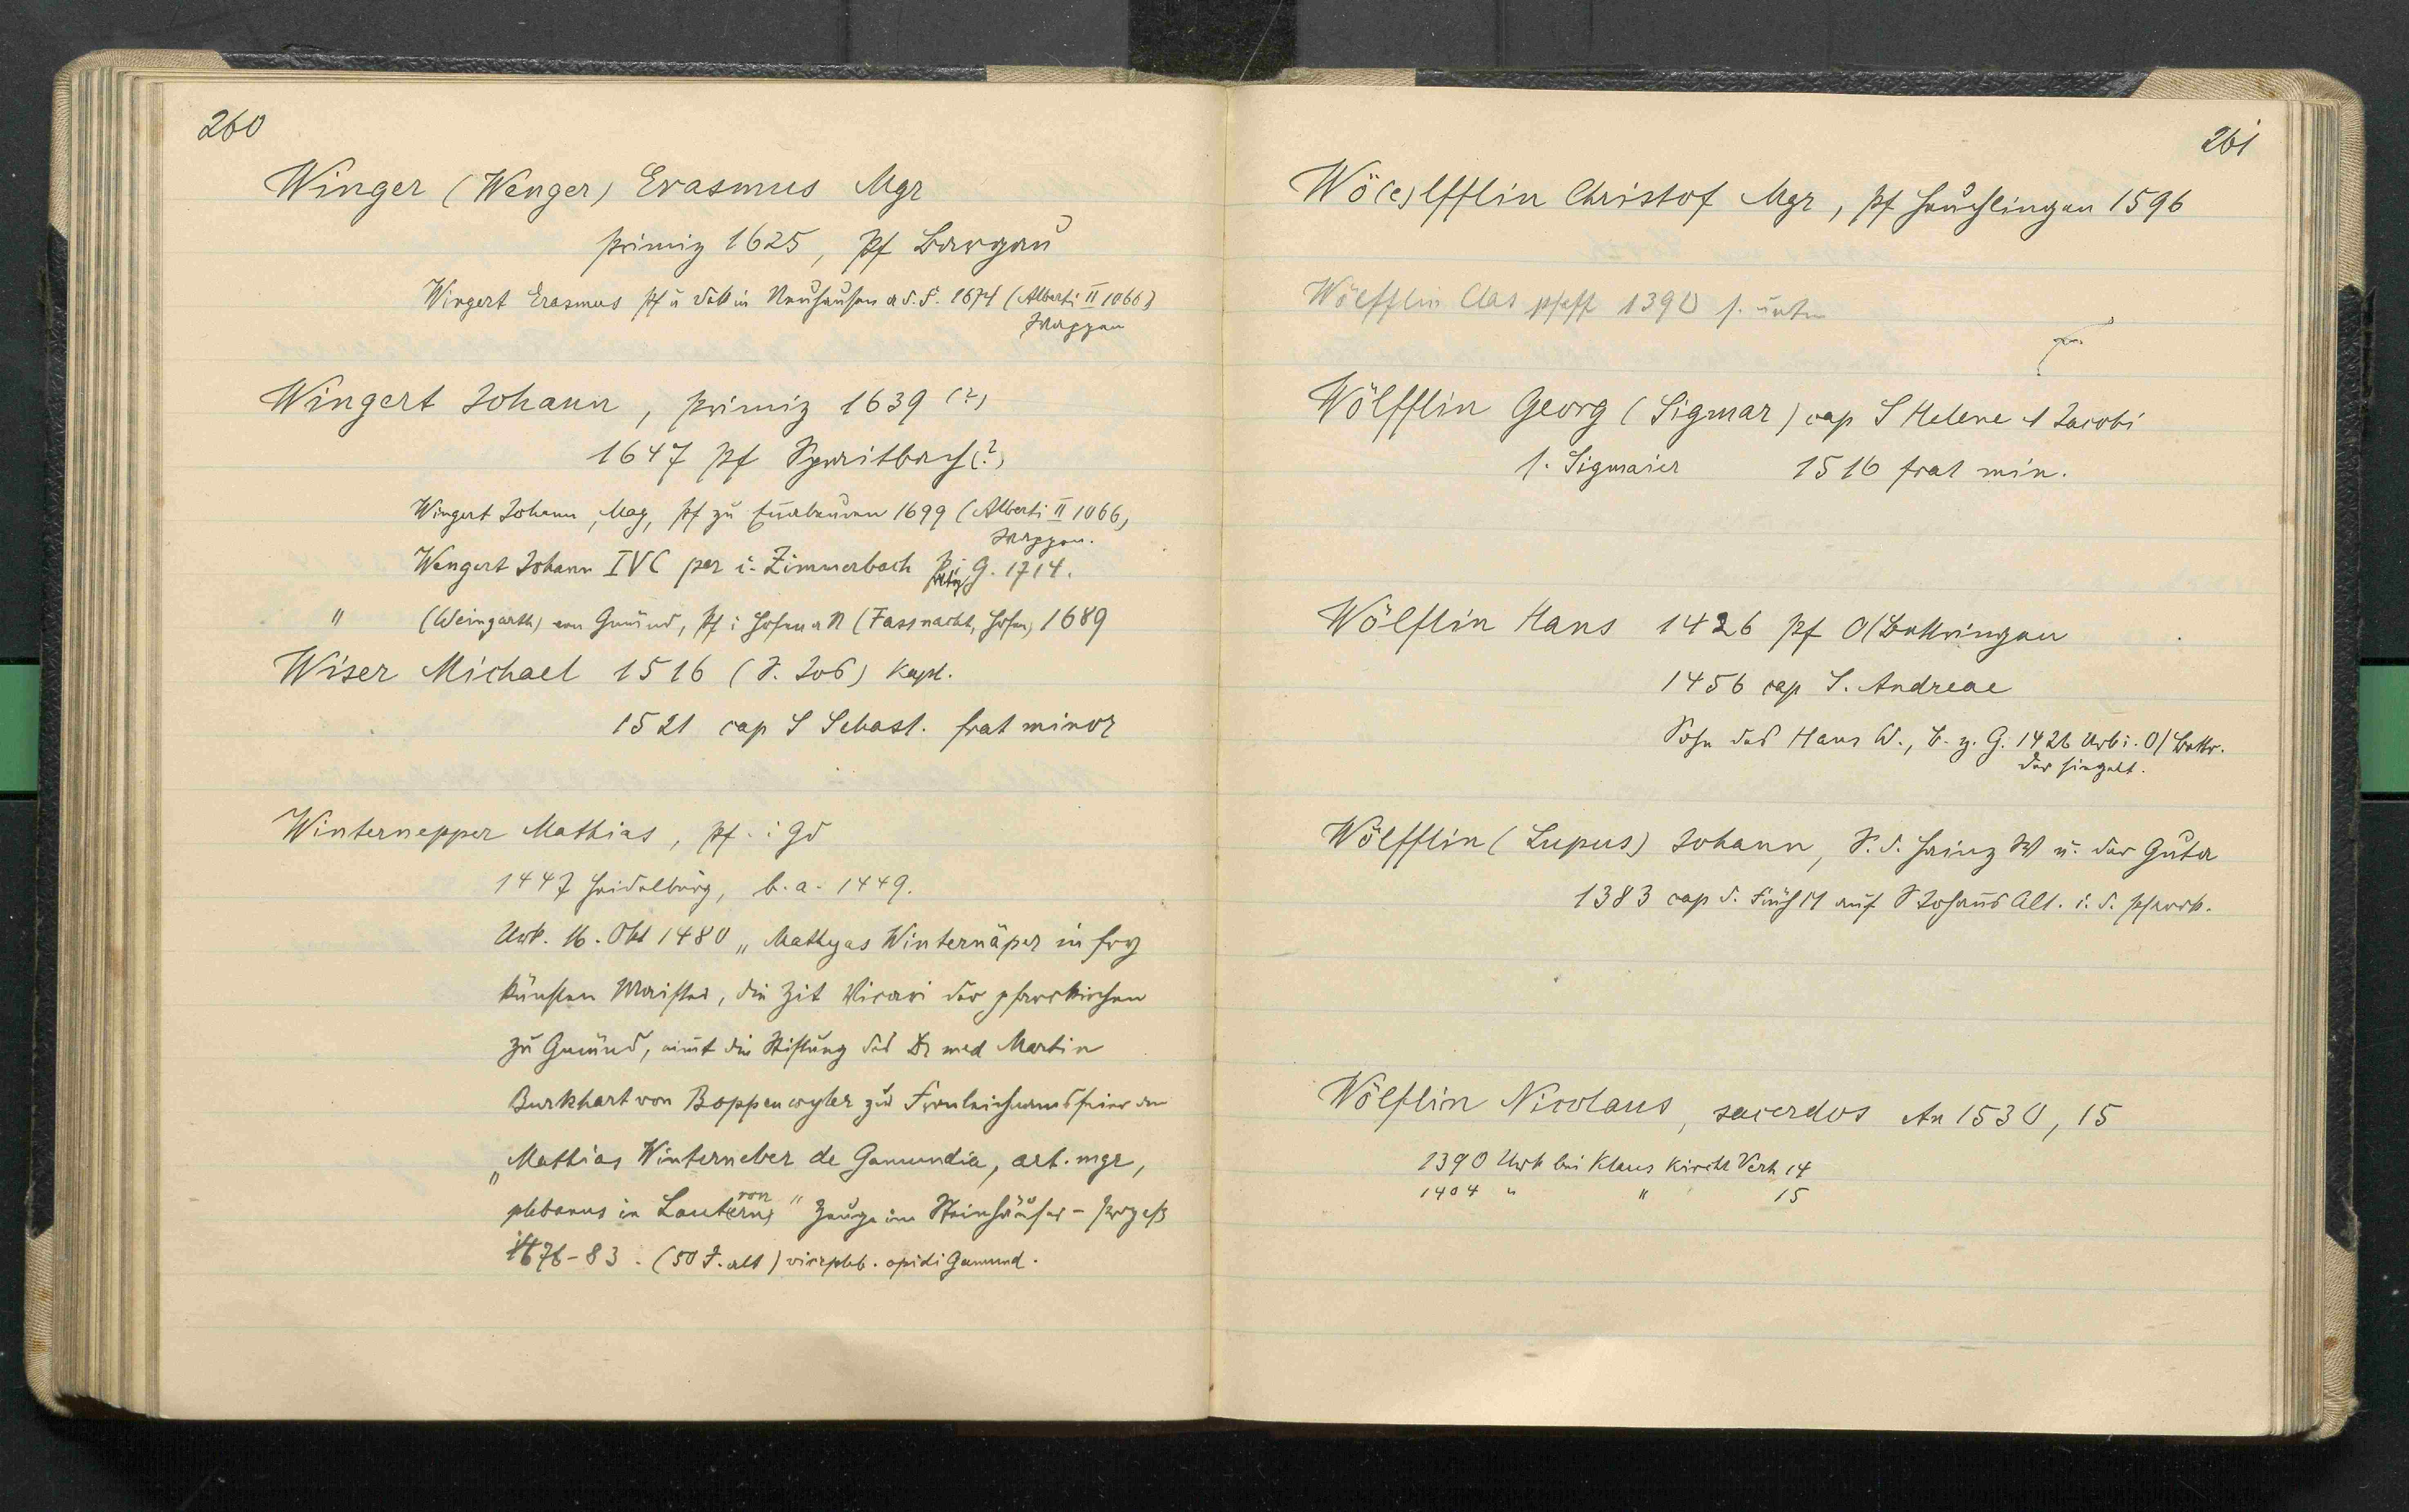 260
Winger (Wenger) Erasmus Mgr
primiz 1625, Pf Bargau
Wingert Erasmus Pf u Dek in Neuhausen a. d. F. 1674 (Alberti II 1066)
Wappen
Wingert Johann, primiz 1639 (?)
1647 Pf Spraitbach (?)
Wingert Johann, Mag, Pf zu 1699 (Alberti II 1066,
Wappen.
Wengert Johann IVC par i. Zimmerbach G. 1714.
" (Weingarth) von Gmünd, Pf i Hofen a N (Fassnacht, Hofen) 1689
Wiser Michael 1516 (S. Job) Kapl.
1521 cap S Sebast. frat minor
Winternepper Mathias, Pf. i Gd
1447 Heidelberg, b. a. 1449.
Urk. 16. Okt 1480 „Mathyas Winternäper in fry
künsten Maister, die Zit Vicari der pfarrkirchen
zu Gmünd, nimt die Stiftung des Dr med Martin
Burkhart von Boppenwyler zur Fronleichnamsfeier an
„Mathias Winterneber de Gamundia, art. mgr,
plebanus in Lautern" Zeuge im Steinhäuser-Prozess
1476-83. (50 J. alt) vicepleb. opidi Gamund.
261
Wö(e)lfflin Christof Mgr, Pf Heuchlingen 1596
Wölfflin Clas pfaff 1390 s. unten
Wölfflin Georg (Sigmar) cap S Helene & Jacobi
s. Sigmaier 1516 frat min.
Wölflin Hans 1426 Pf O/Bettringen
1456 cap S. Andreae
Sohn des Hans W., B. z. G. 1426 Urk i. O/Bettr.
der siegelt.
Wölfflin (Lupus) Johann, S. d. Heinz W u. der Guta
1383 cap d. Früh M auf S Johans Alt. i. d. Pfarrk.
Wölflin Nicolaus, sacerdos An 1530, 15
1390 Urk bei Klaus Kirchl Verh 14
1404 " " 15